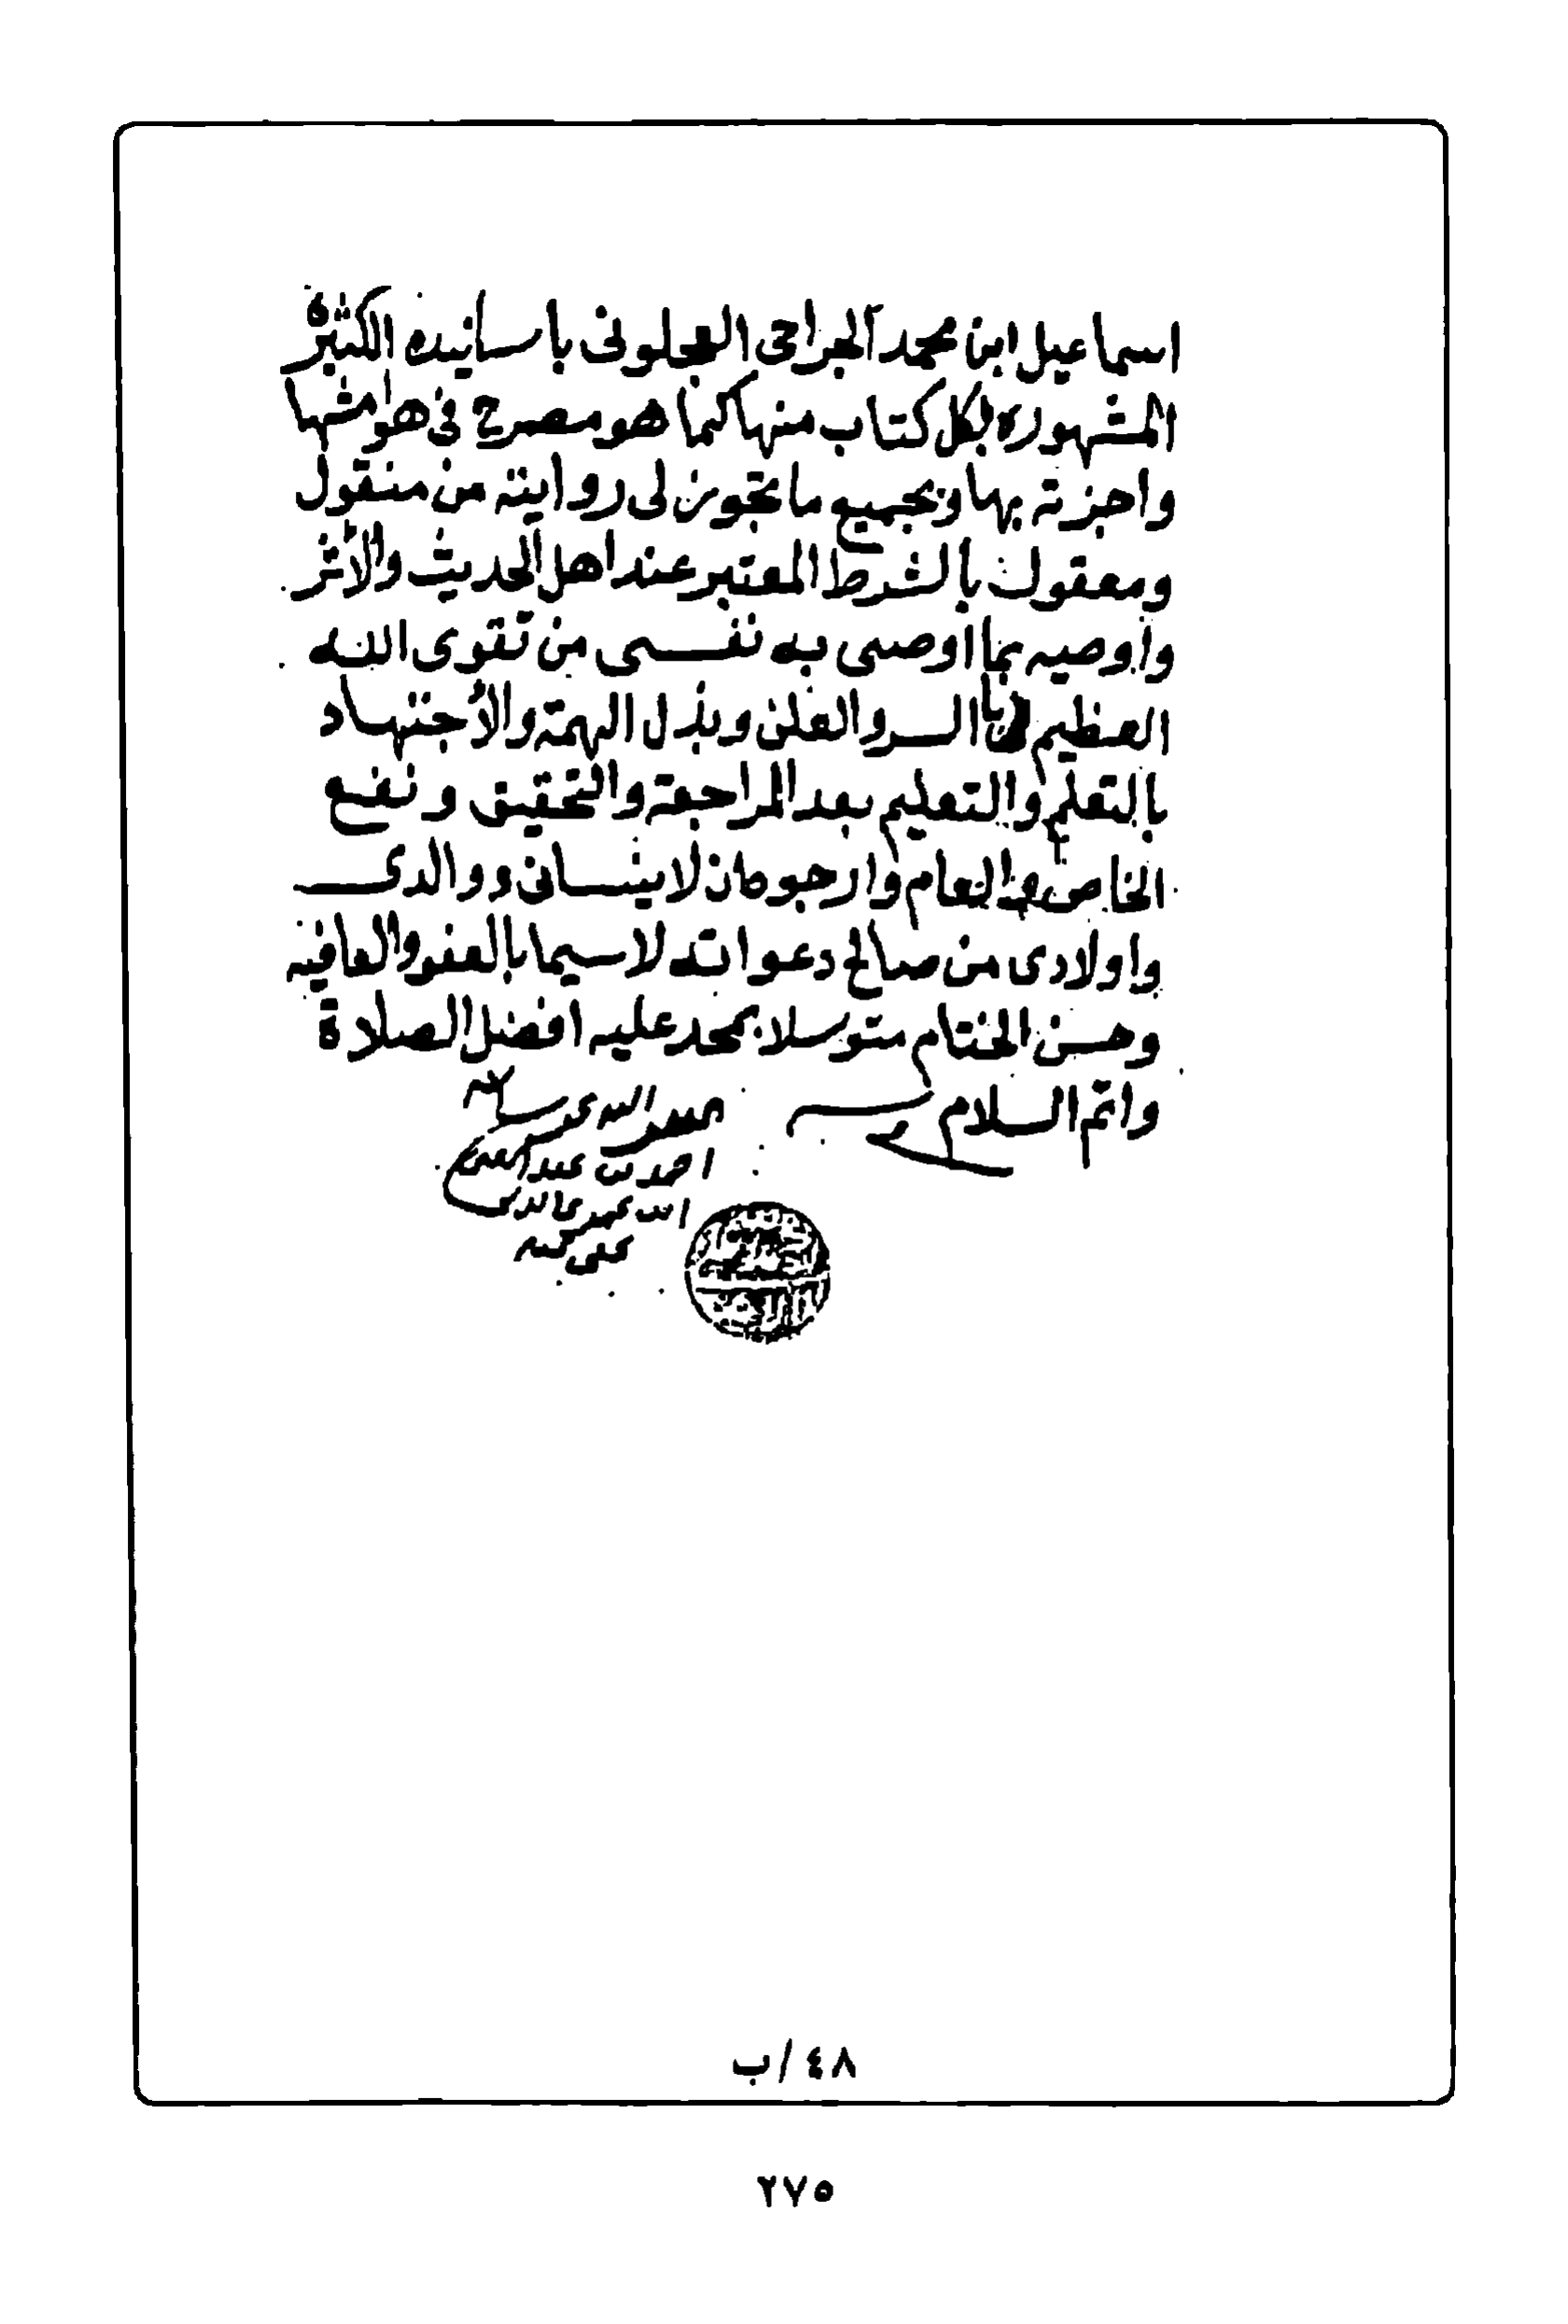 اسماعيل ابن محمد الجراحى العجلونى باسانيده الكثيرة
المشهورة بكل كتاب منها كما هو مصرح فى هوامشها
واجزته بها وبجميع ما تجوز لى روايته من منقول
ومعقول بالشرط المعتبر عند اهل الحديث والأثر
واوصيه بما اوصى به نفسى من تقوى الله
العظيم فى السر والعلن وبذل الهمة والأجتهاد
بالتعلم والتعليم بعد المراجعة والتحقيق ونفع
الخاص والعام وارجو ان لا ينسانى ووالدى
واولادى من صالح دعواته لا سيما بالعفو والعافيه
وحسن الختام متوسلا بمحمد عليه افضل الصلاة
واتم السلام
احمد بن عبيد
٤٨/ب
٢٧٥